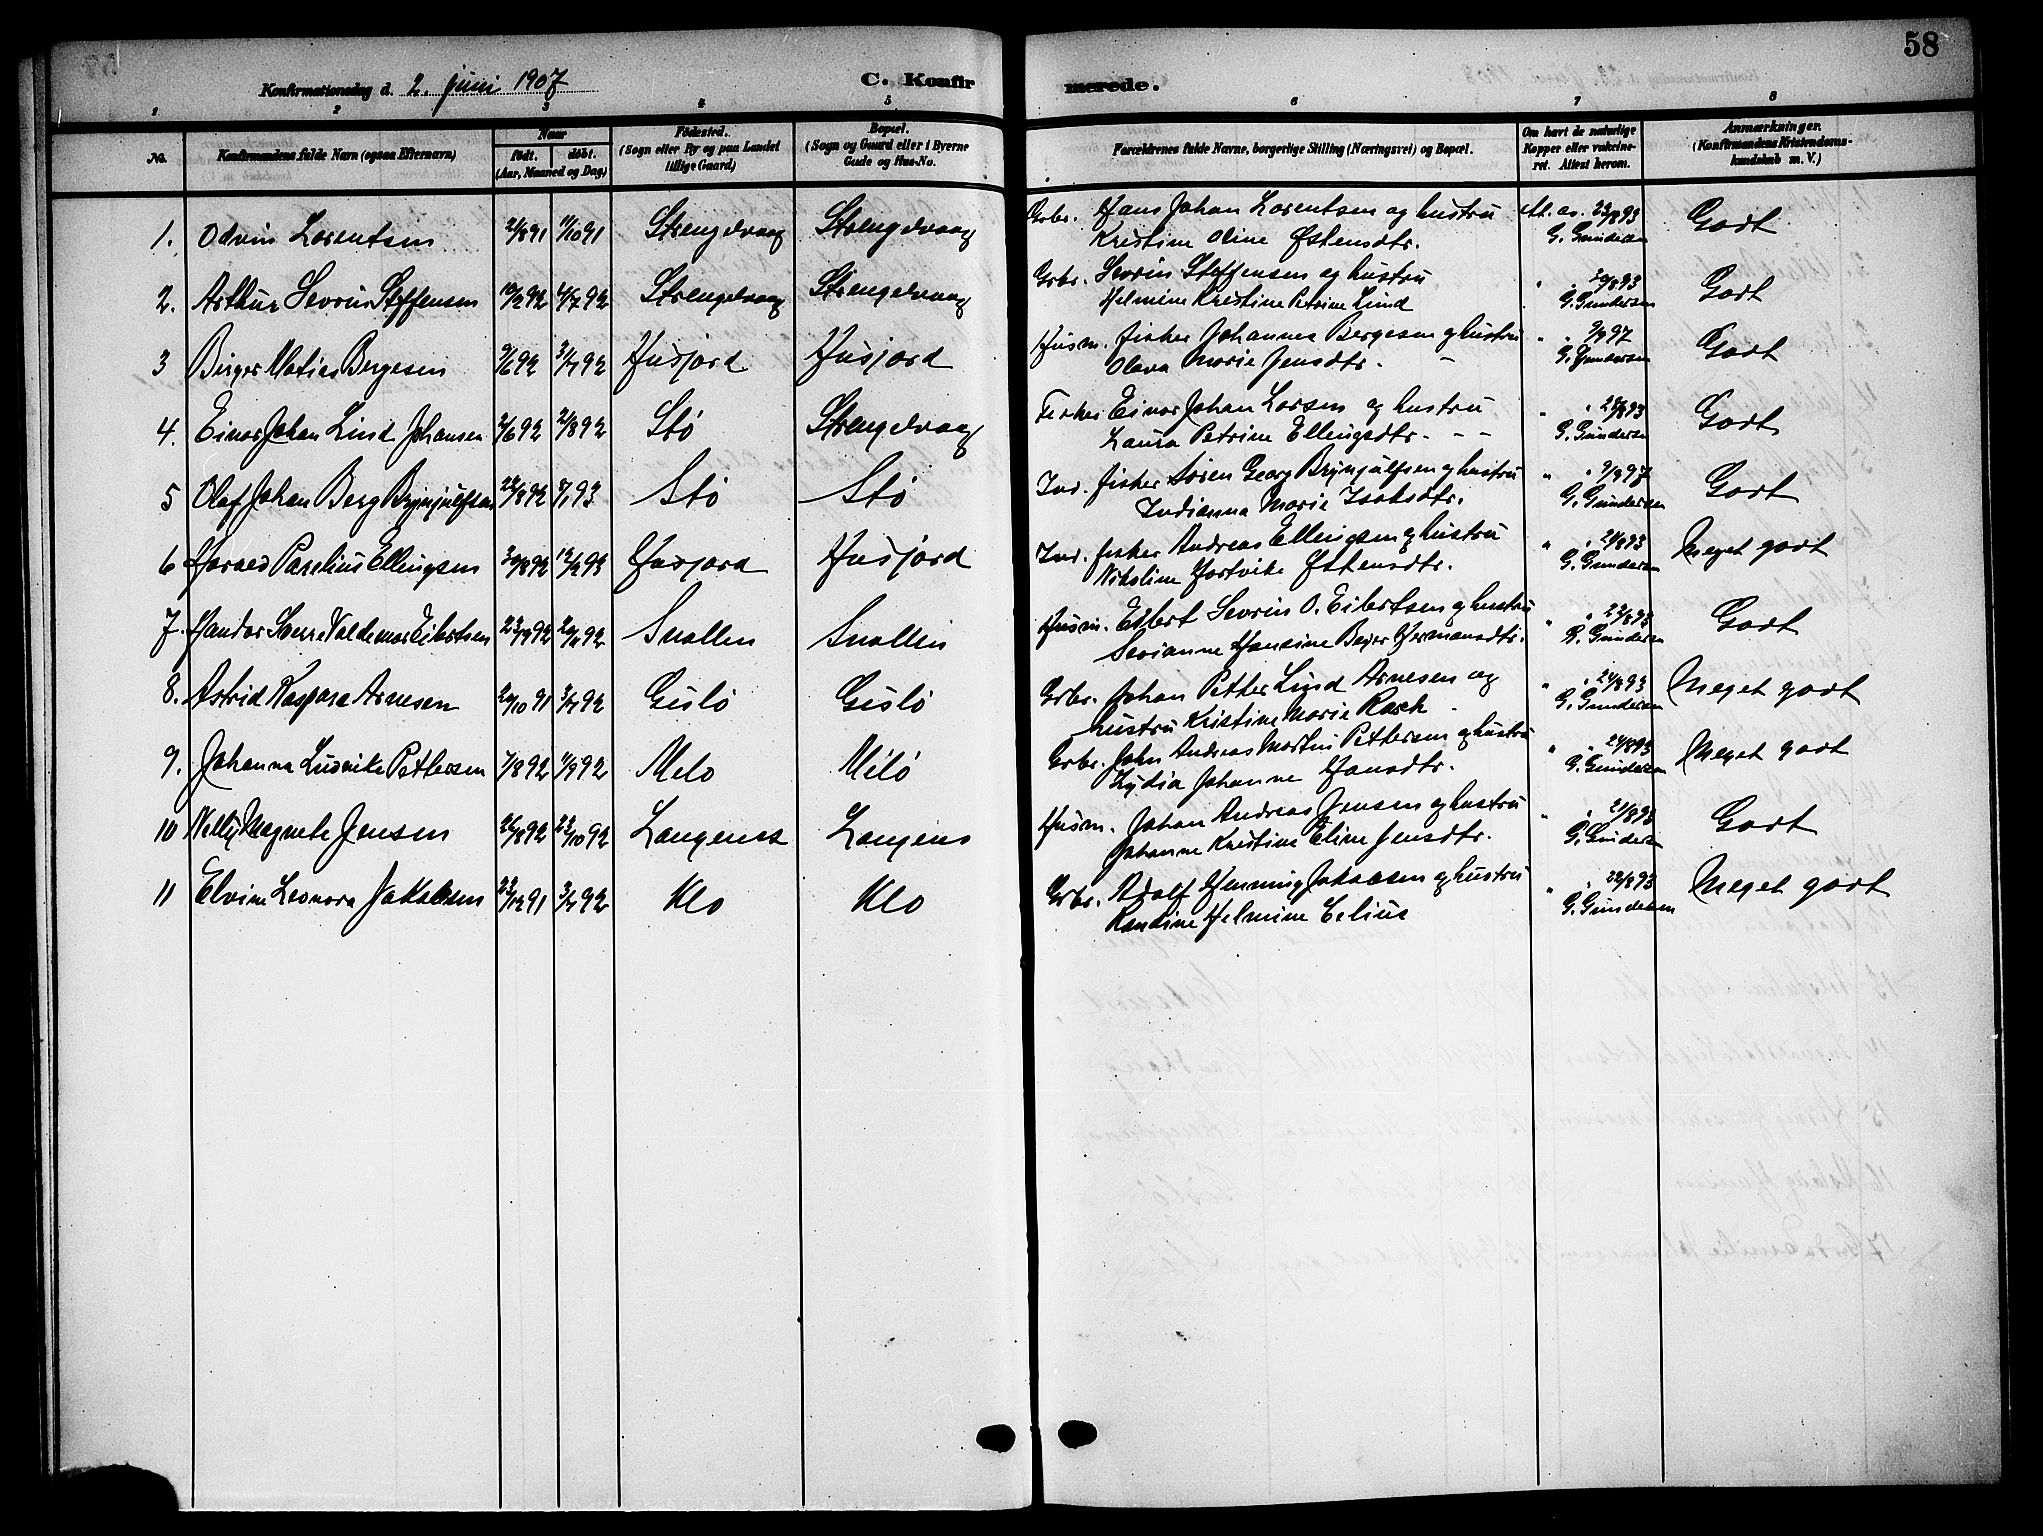 58
Konfirmationsdag d. 2. juni 1907
C. Konfirmerede.
1 2 3 4 5 6 7 8
No.
Konfirmandens fulde Navn (ogsaa Efternavn)
Naar
født. døbt.
(Aar, Maaned og Dag)
Fødested.
(Sogn eller By og paa Landet
tillige Gaard)
Bopæl.
(Sogn og Gaard eller i Byerne
Gade og Hus-No.
Forældrenes fulde Navne, borgerlige Stilling (Næringsvei) og Bopæl.
Om havt de naturlige
Kopper eller vaksine-
ret. Attest herom.
Anmærkninger.
(Konfirmandens Kristendoms-
kundskab m. V.)
1. Odvin Lorentsen 2/8 91 11/10 91 Strengelvaag Strengelvaag Grbr. Hans Johan Lorentsen og hustru At. as. 23/8 93 Godt
Kristine Oline Østensdtr. G. Gundersen
2. Arthur Sevrin Steffensen 10/2 92 4/7 92 Strengelvaag Strengelvaag Grbr. Sevrin Steffensen og hustru " 30/8 93 Godt
Helmine Kristine Petrine Lind G. Gundersen
3 Birger Matias Bergesen 9/6 92 31/7 92 Husjord Husjord Husm. fisker Johannes Bergesen og hustru " 9/9 97 Godt
Olava Marie Jensdtr. G. Gundersen
4. Einar Johan Lind Johansen 2/6 92 21/8 92 Stø Strengelvaag Fisker Einar Johan Larsen og hustru " 28/8 93 Godt
Laura Petrine Ellingsdtr. G. Gundersen
5 Olaf Johan Berg Brynjulfsen 28/8 92 8/1 93 Stø Stø Ind. fisker Søren Georg Brynjulfsen og hustru " 9/9 97 Godt
Indianna Marie Isaksdtr. G. Gundersen
6 Harald Parelius Ellingsen 30/8 92 12/2 93 Husjord Husjord Ind. fisker Andreas Ellingsen og hustru " 21/8 93 Meget godt
Nikoline Hartvike Østensdtr. G. Gundersen
7. Handor Sverre Valdemar Eibertsen 23/9 92 20/11 92 Snallen Snallen Husm. Eibert Sevrin O. Eibertsen og hustru " 22/8 93 Godt
Sevianne Hansine Beyer Hermansdtr. G. Gundersen
8. Astrid Kaspara Arnesen 20/10 91 3/7 92 Gislø Gislø Grbr. Johan Petter Lind Arnesen og " 24/8 93 Meget godt
hustru Kristine Marie Rasch G. Gundersen
9. Johanna Ludvike Pettersen 7/8 92 11/9 92 Melo Milø Grbr. John Andreas Martin Pettersen og hustru " 24/8 93 Meget godt
Lydia Johanne Hansdtr. G. Gundersen
10 Nelly Magnete Jensen 26/8 92 23/10 92 Langenes Langenes Husm. Johan Andreas Jensen og hustru " 21/8 93 Godt
Johanne Kristine Eline Jensdtr. G. Gundersen
11 Elvine Leonora Jakobsen 23/12 91 3/7 92 Klo Klo Grbr. Adolf Henning Jakobsen og hustru " 22/8 93 Meget godt
Randine Helmine Celius G. Gundersen